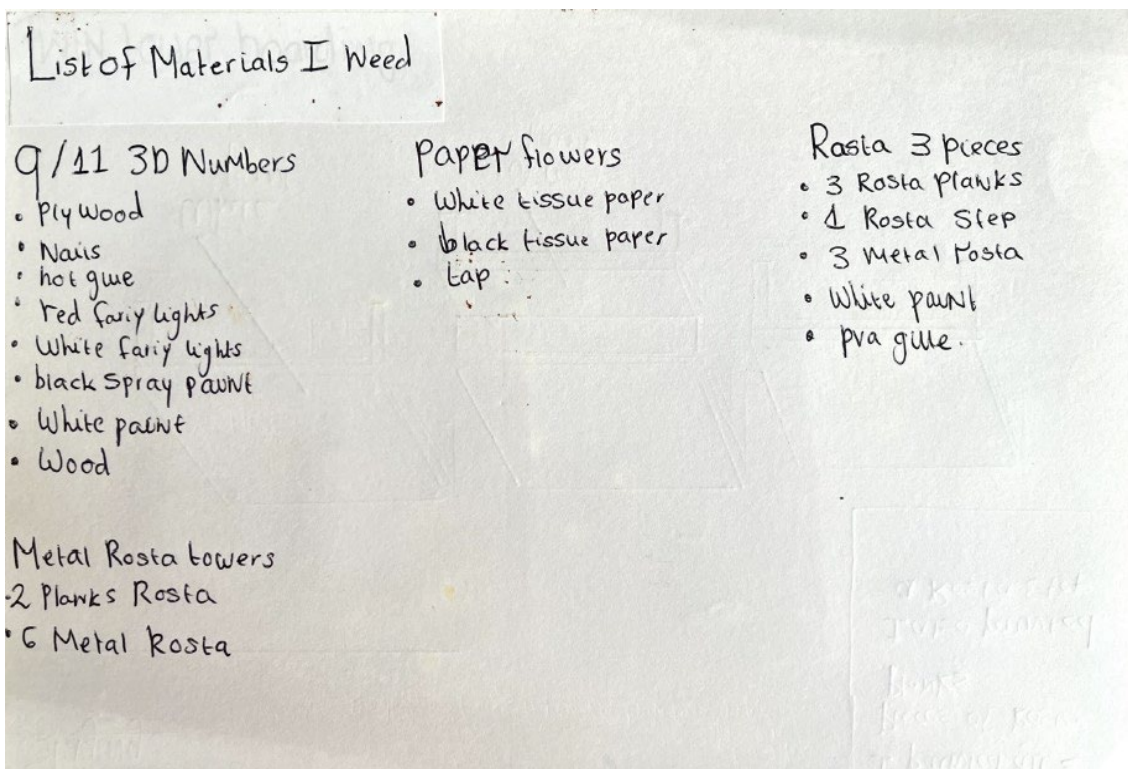 List of Materials I Need
9/11 3D Numbers
• Plywood
• Nails
• hot glue
• red fariy lights
• White fariy lights
• black Spray paint
• White paint
• Wood
Metal Rosta towers
-2 Planks Rosta
• 6 Metal Rosta
Paper flowers
• White tissue paper
• black tissue paper
• tap
Rosta 3 pieces
• 3 Rosta Planks
• 1 Rosta Step
• 3 Metal rosta
• White paint
• pva glue.